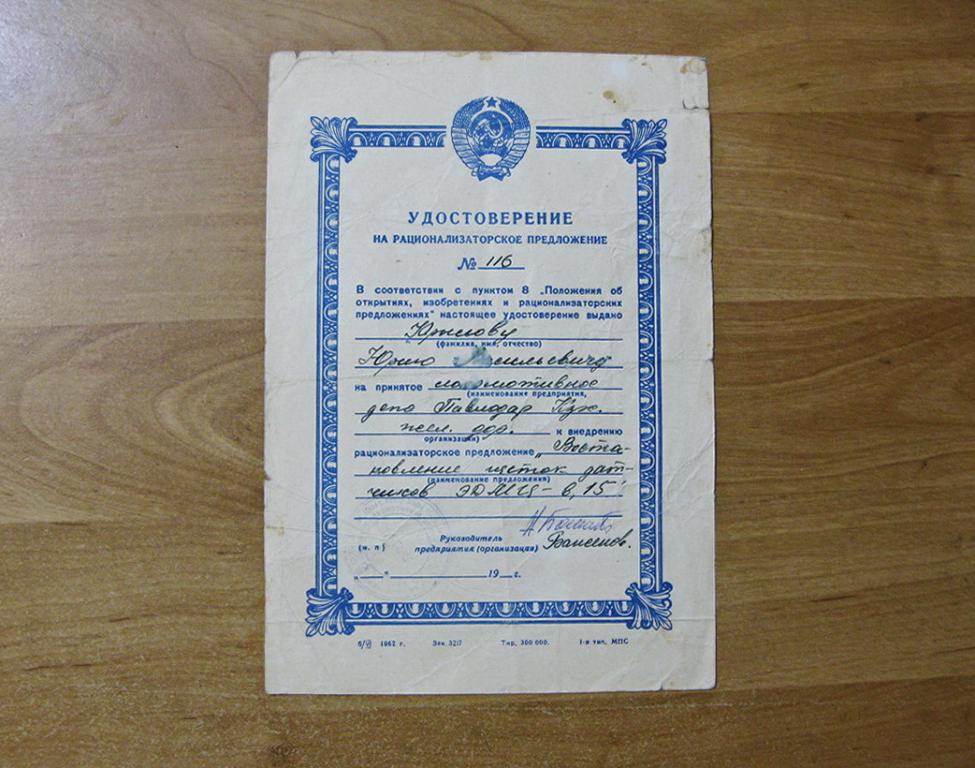 УДОСТОВЕРЕНИЕ
НА РАЦИОНАЛИЗАТОРСКОЕ ПРЕДЛОЖЕНИЕ
№ 116
В соответствии с пунктом 8 „Положения об
открытиях, изобретениях и рационализаторских
предложениях" настоящее удостоверение выдано
(фамилия, имя, отчество)
Юрию
на принятое локомотивное
(наименование предприятия,
депо Павлодар Каз.
жел. дор. к внедрению
организации)
рационализаторское предложение „Воста-
новление щеток дат-
(наименование предложения)
чиков
Руководитель
(м. п.) предприятия (организации)
„ " 19 г.
6/VI 1962 г. Зак. 3217 Тир. 300 000. 1-я тип. МПС